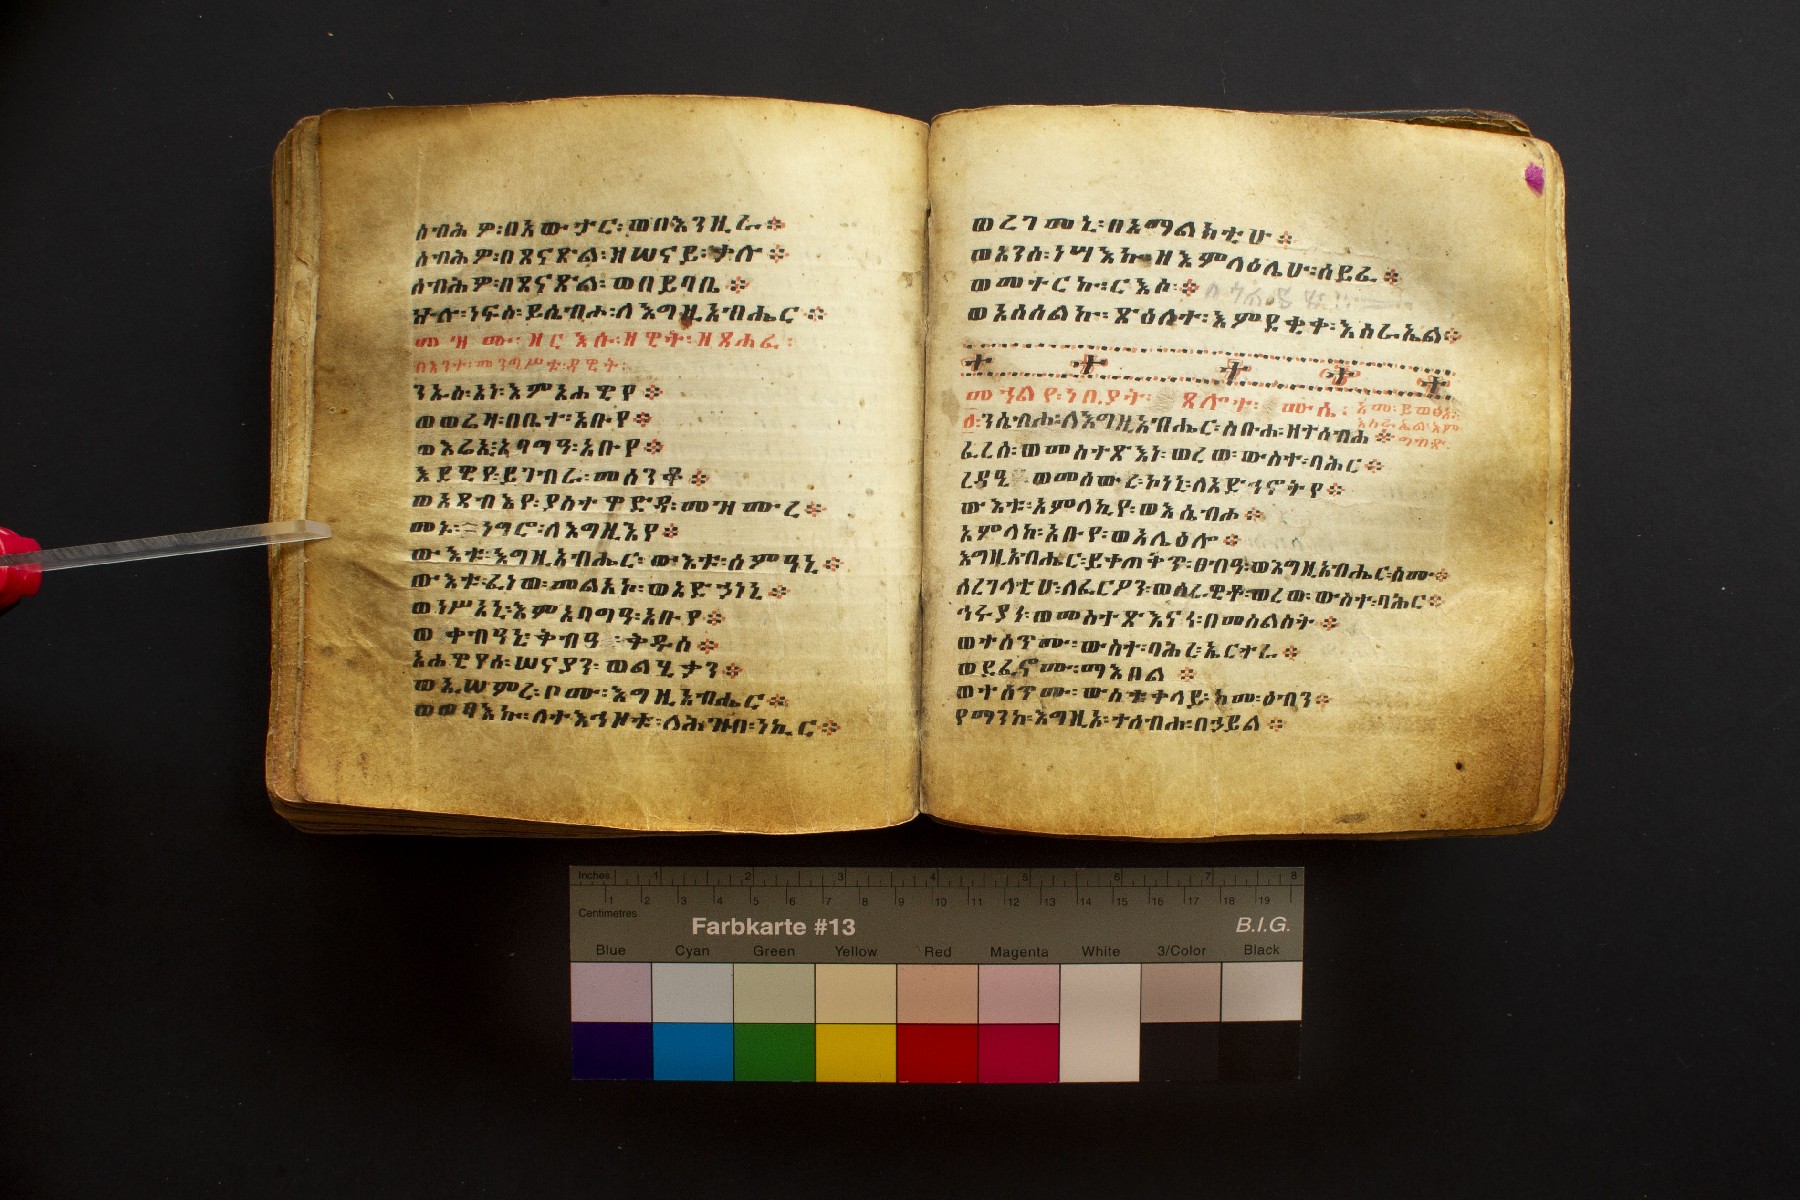 ሰብሕዎ፡በአውታር፡ወበእንዚራ፨
ሰብሕዎ፡በጸናጽል፡ዘሠናይ፡ቃሉ፨
ሰብሕዎ፡በጸናጽል፡ወበይባቤ፨
ኵሉ፡ነፍስ፡ይሴብሖ፡ለእግዚአብሔር፨
መዝሙር፡ዘርእሱ፡ዘዊት፡ዘጸሐፈ፡
በእንተ፡መንግሥቱ፡ዳዊት፡
ንኡስ፡አነ፡እምአሐዊየ፨
ወወሬዛ፡በቤተ፡አቡየ፨
ወእሬእይ፡አባግዓ፡አቡየ፨
እደዊየ፡ይገብራ፡መሰንቆ፨
ወአጻብእየ፡ያስተዋድዳ፡መዝሙረ፨
መኑ፡ነግሮ፡ለእግዚእየ፨
ውእቱ፡እግዚአብሔር፡ውእቱ፡ሰምዓኒ፨
ውእቱ፡ፈነወ፡መልአኮ፡ወአድኃነኒ፨
ወነሥአኒ፡እምአባግዓ፡አቡየ፨
ወቀብዓኒ፡ቅብዓ፡ቅዱስ፨
አሐዊየሰ፡ሠናያን፡ወልሂቃን፨
ወኢሠምረ፡ቦሙ፡እግዚአብሔር፨
ወወፃእኩ፡ለተእኅዞቱ፡ለሕዝብ፡ነኪር፨
ወረገመኒ፡በአማልክቲሁ፨
ወአንሰ፡ነሣእኩ፡ዘእምላዕሌሁ፡ሰይፈ፨
ወመተርኩ፡ርእሰ፨
ወአሰሰልኩ፡ጽዕለተ፡እምደቂቀ፡እስራኤል፨
መኃልየ፡ነቢያት፡ ጸሎተ፡ ሙሴ፡ አመ፡ይወፅእ፡
እስራኤል፡እም
ግብጽ
፩፡ንሴብሖ፡ለእግዚአብሔር፡ስቡሐ፡ዘተሰብሐ፨
ፈረሰ፡ወመስተጽእነ፡ወረወ፡ውስተ፡ባሕር፨
ረዳዒ፡ወመሰውረ፡ኮነኒ፡ለአድኅኖትየ፨
ውእቱ፡አምላኪየ፡ወእሴብሖ፨
አምላከ፡አቡየ፡ወአሌዕሎ፨
እግዚአብሔር፡ይቀጠቅጥ፡ፀብዓ፡ወእግዚአብሔር፡ስሙ፨
ሰረገላቲሁ፡ለፈርዖን፡ወሰራዊቶ፡ወረወ፡ውስተ፡ባሕር፨
ኅሩያነ፡ወመስተጽእናነ፡በመስልስት፨
ወተሰጥሙ፡ውስተ፡ባሕረ፡ኤርትራ፨
ወደፈኖሙ፡ማእበል፨
ወተሰጥሙ፡ውስተ፡ቀላይ፡ከመ፡ዕብን፨
የማንከ፡እግዚኦ፡ተሰብሐ፡በኃይል፨
Inches 1 2 3 4 5 6 7 8
1 2 3 4 5 6 7 8 9 10 11 12 13 14 15 16 17 18 19
Centimetres
Farbkarte #13
B.I.G.
Blue Cyan Green Yellow Red Magenta White 3/Color Black